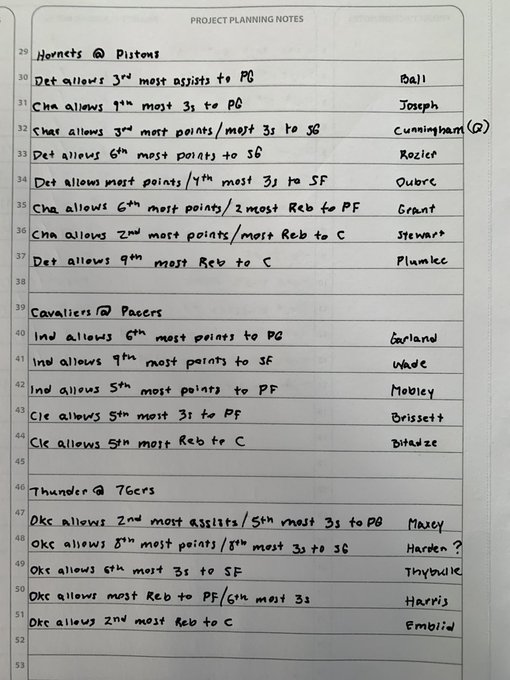 PROJECT PLANNING NOTES
29 Hornets @ Pistons
30 Det allows 3rd most assists to PG Ball
31 Cha allows 9th most 3s to PG Joseph
32 Char allows 3rd most points/most 3s to SG Cunningham (Q)
33 Det allows 6th most points to SG Rozier
34 Det allows most points/4th most 3s to SF Oubre
35 Cha allows 6th most points/2 most Reb to PF Grant
36 Cha allows 2nd most points/most Reb to C Stewart
37 Det allows 9th most Reb to C Plumlee
38
39 Cavaliers @ Pacers
40 Ind allows 6th most points to PG Garland
41 Ind allows 9th most points to SF Wade
42 Ind allows 5th most points to PF Mobley
43 Cle allows 5th most 3s to PF Brissett
44 Cle allows 5th most Reb to C Bitadze
45
46 Thunder @ 76ers
47 Okc allows 2nd most assists/5th most 3s to PG Maxey
48 Okc allows 8th most points/8th most 3s to SG Harden ?
49 Okc allows 6th most 3s to SF Thybulle
50 Okc allows most Reb to PF/6th most 3s Harris
51 Okc allows 2nd most Reb to C Embiid
52
53